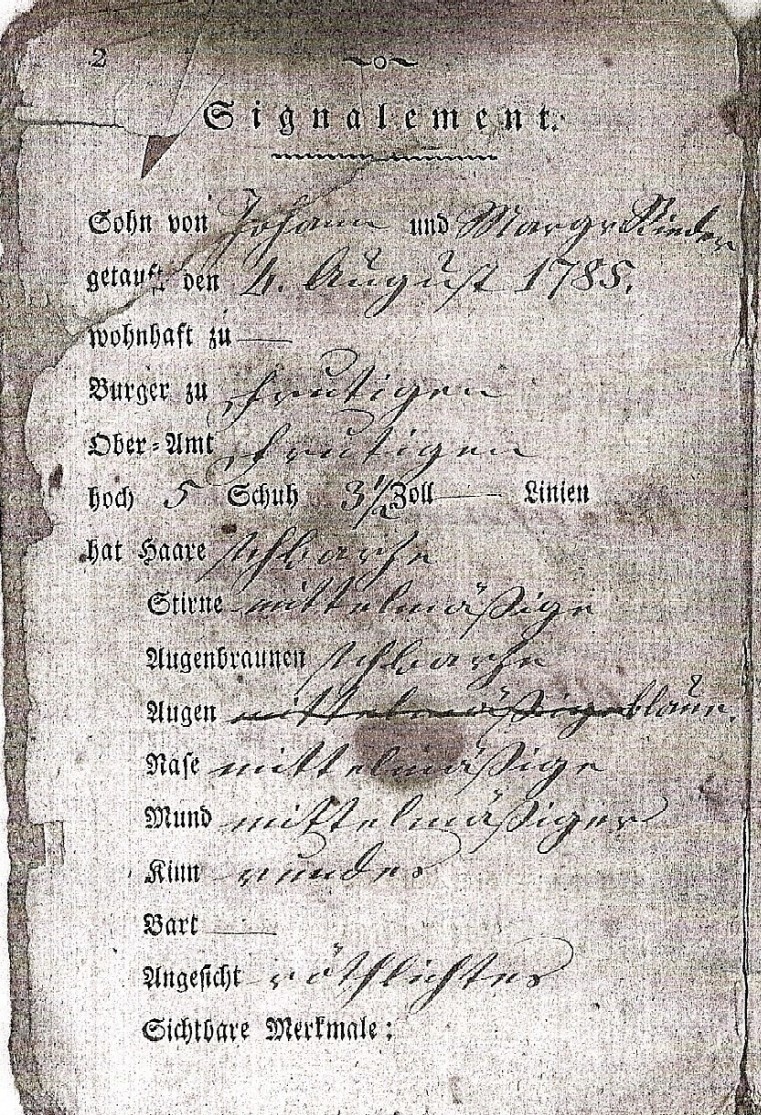 2
Signalement.
Sohn von Johann und Margr Rieder
getauft den 4. August 1785.
wohnhaft zu —
Burger zu Frutigen
Ober-Amt Frutigen
hoch 5 Schuh 3½ Zoll — Linien
hat Haare schwarze
Stirne mittelmäßige
Augenbraunen schwarze
Augen mittelmäßige blaue.
Nase mittelmäßige
Mund mittelmäßiger
Kinn rundes
Bart —
Angesicht röthlichtes
Sichtbare Merkmale: